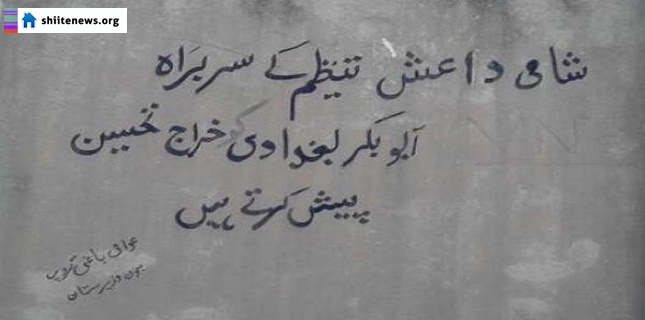 shiitenews.org
شامی داعش تنیظم کے سربراہ
ابو بکر بغدادی کو خراج تحسین
پیش کرتے ہیں
عوامی باغی گروپ
بنوں وزیرستان